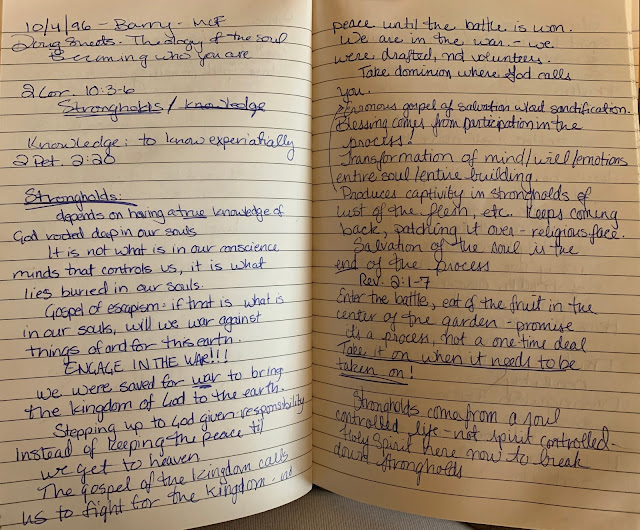 10/4/96 - Barry - MCF
Doug Smeds. Theology of the soul
Becoming who you are
2 Cor. 10:3-6
Strongholds / Knowledge
Knowledge: to know experiatially
2 Pet. 2:20
Strongholds:
depends on having a true knowledge of
God rooted deep in our souls
It is not what is in our conscience
minds that controls us, it is what
lies buried in our souls.
Gospel of escapism: if that is what is
in our souls, will we war against
things of and for this earth.
ENGAGE IN THE WAR!!!
We were saved for war to bring
the kingdom of God to the earth.
Stepping up to God given responsibility
Instead of keeping the peace til
we get to heaven
The gospel of the kingdom calls
us to fight for the kingdom - no
peace until the battle is won.
We are in the war - we
were drafted, not volunteers.
Take dominion where God calls
you.
gospel of salvation w/out sanctification.
Blessing comes from participation in the
process.
Transformation of mind/will/emotions
entire soul/entire building.
Produces captivity in strongholds of
lust of the flesh, etc. Keeps coming
back, patching it over - religious face.
Salvation of the soul is the
end of the process
Rev. 2:1-7
Enter the battle, eat of the fruit in the
center of the garden - promise
its a process, not a one time deal
Take it on when it needs to be
taken on!
Strongholds come from a soul
controlled life - not spirit controlled.
Holy Spirit here now to break
down strongholds